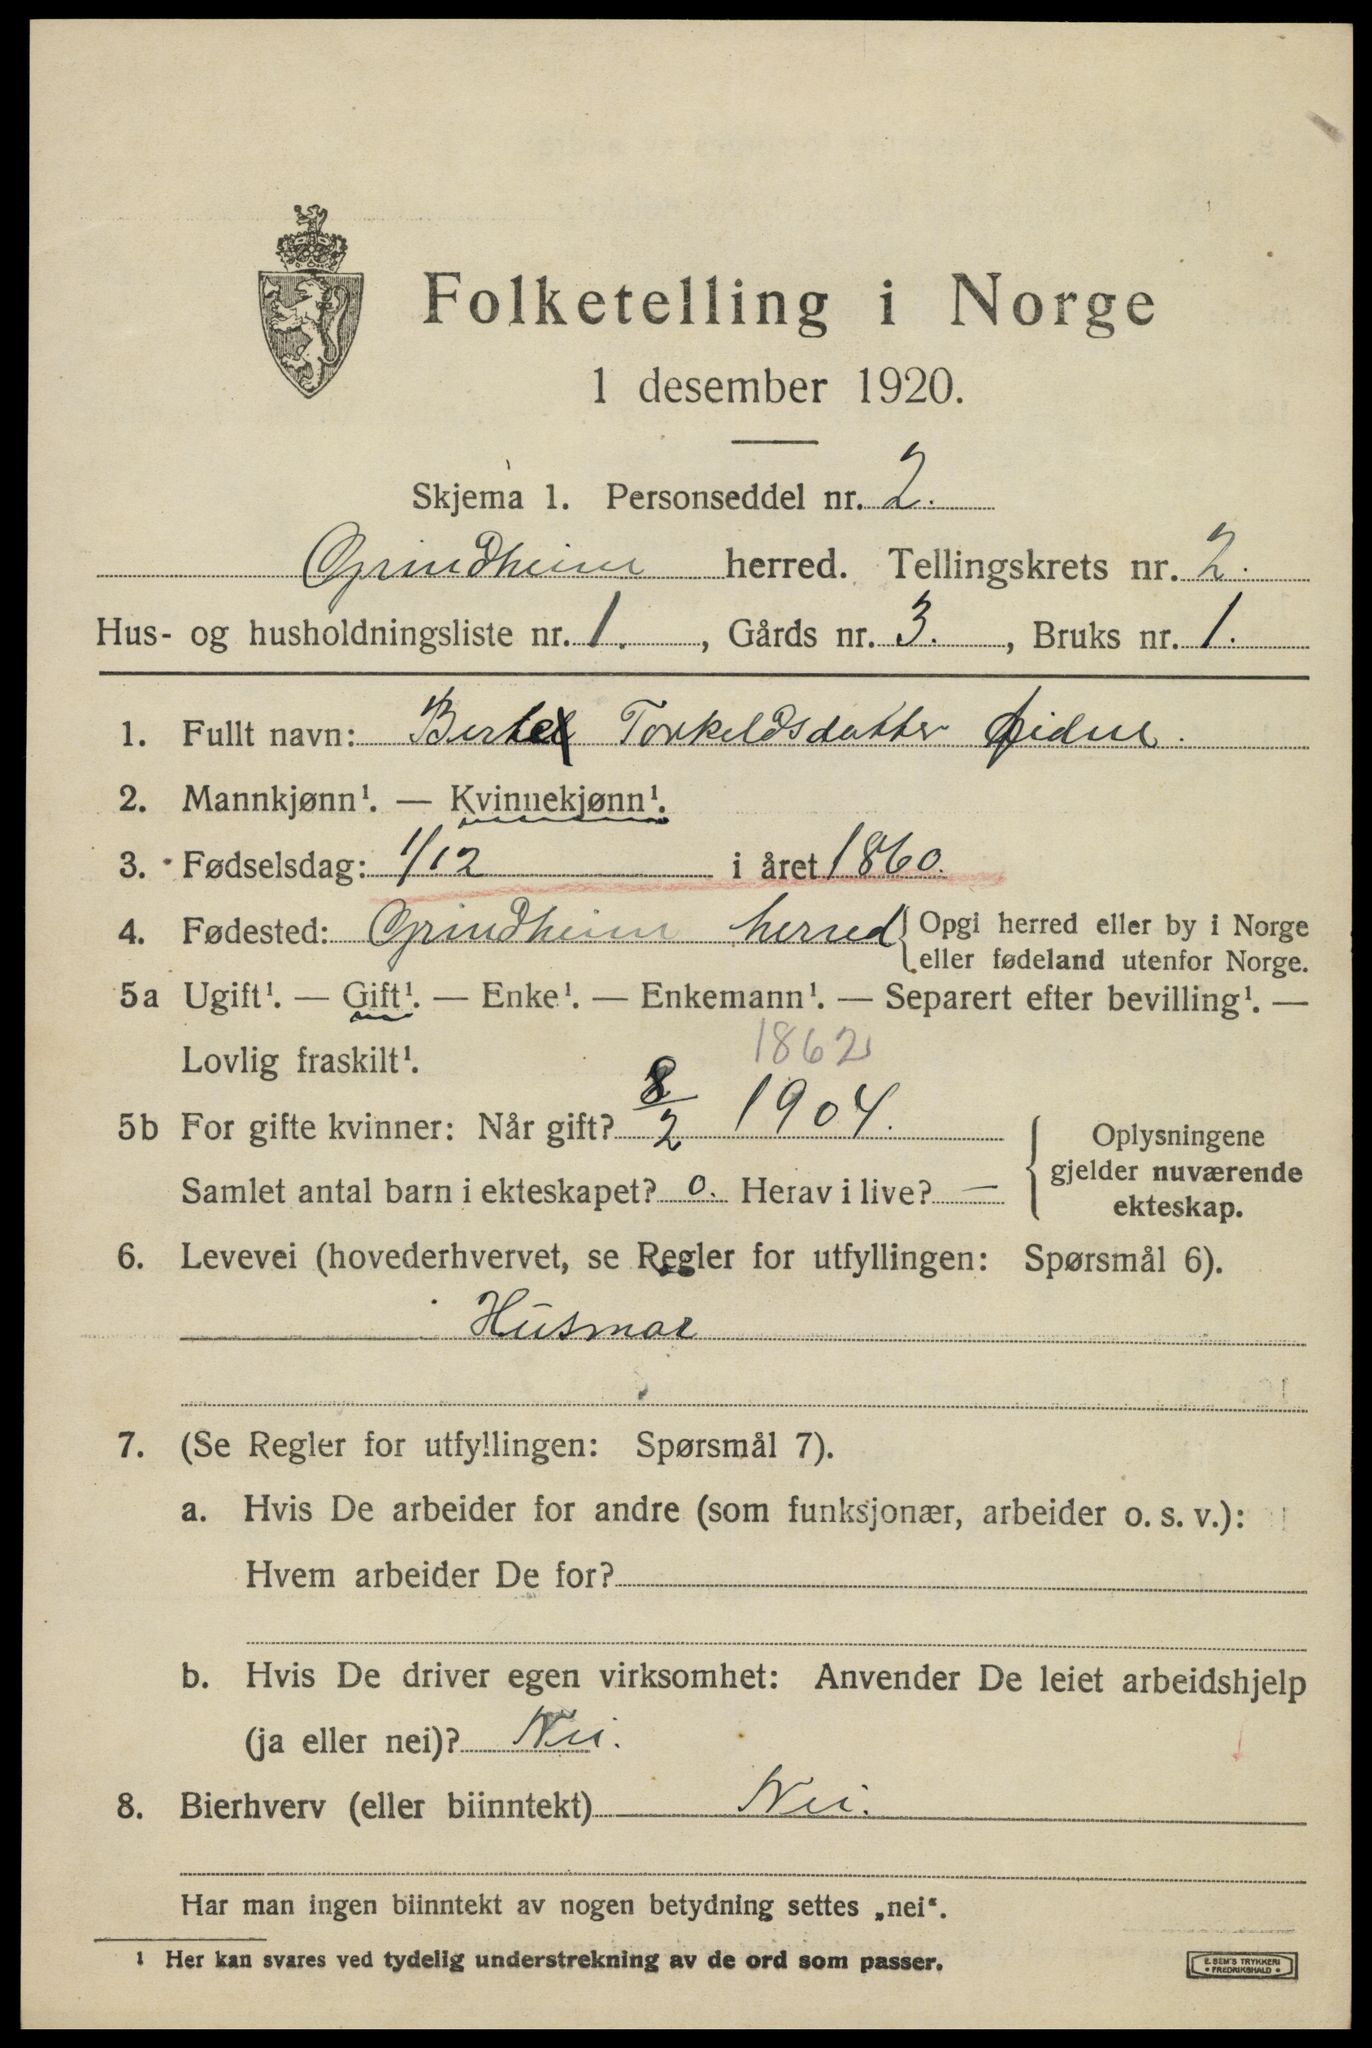 Folketelling i Norge
1 desember 1920.
Skjema 1. Personseddel nr. 2.
Grindheim herred. Tellingskrets nr. 2.
Hus- og husholdningsliste nr. 1., Gårds nr. 3., Bruks nr. 1.
1. Fullt navn: Torkeldsdatter
2. Mannkjønn¹. — Kvinnekjønn¹.
3. Fødselsdag: 1/12 i året 1860.
4. Fødested: Grindheim herred { Opgi herred eller by i Norge
eller fødeland utenfor Norge.
5a Ugift¹. — Gift¹. — Enke¹. — Enkemann¹. — Separert efter bevilling¹. —
Lovlig fraskilt¹.
1862
5b For gifte kvinner: Når gift? 8/2 1904.
Samlet antal barn i ekteskapet? 0. Herav i live? —
{ Oplysningene
gjelder nuværende
ekteskap.
6. Levevei (hovederhvervet, se Regler for utfyllingen: Spørsmål 6).
Husmor
7. (Se Regler for utfyllingen: Spørsmål 7).
a. Hvis De arbeider for andre (som funksjonær, arbeider o. s. v.):
Hvem arbeider De for?
b. Hvis De driver egen virksomhet: Anvender De leiet arbeidshjelp
(ja eller nei)? Nei.
8. Bierhverv (eller biinntekt) Nei.
Har man ingen biinntekt av nogen betydning settes „nei“.
¹ Her kan svares ved tydelig understrekning av de ord som passer.
E. SEM'S TRYKKERI
• FREDRIKSHALD •